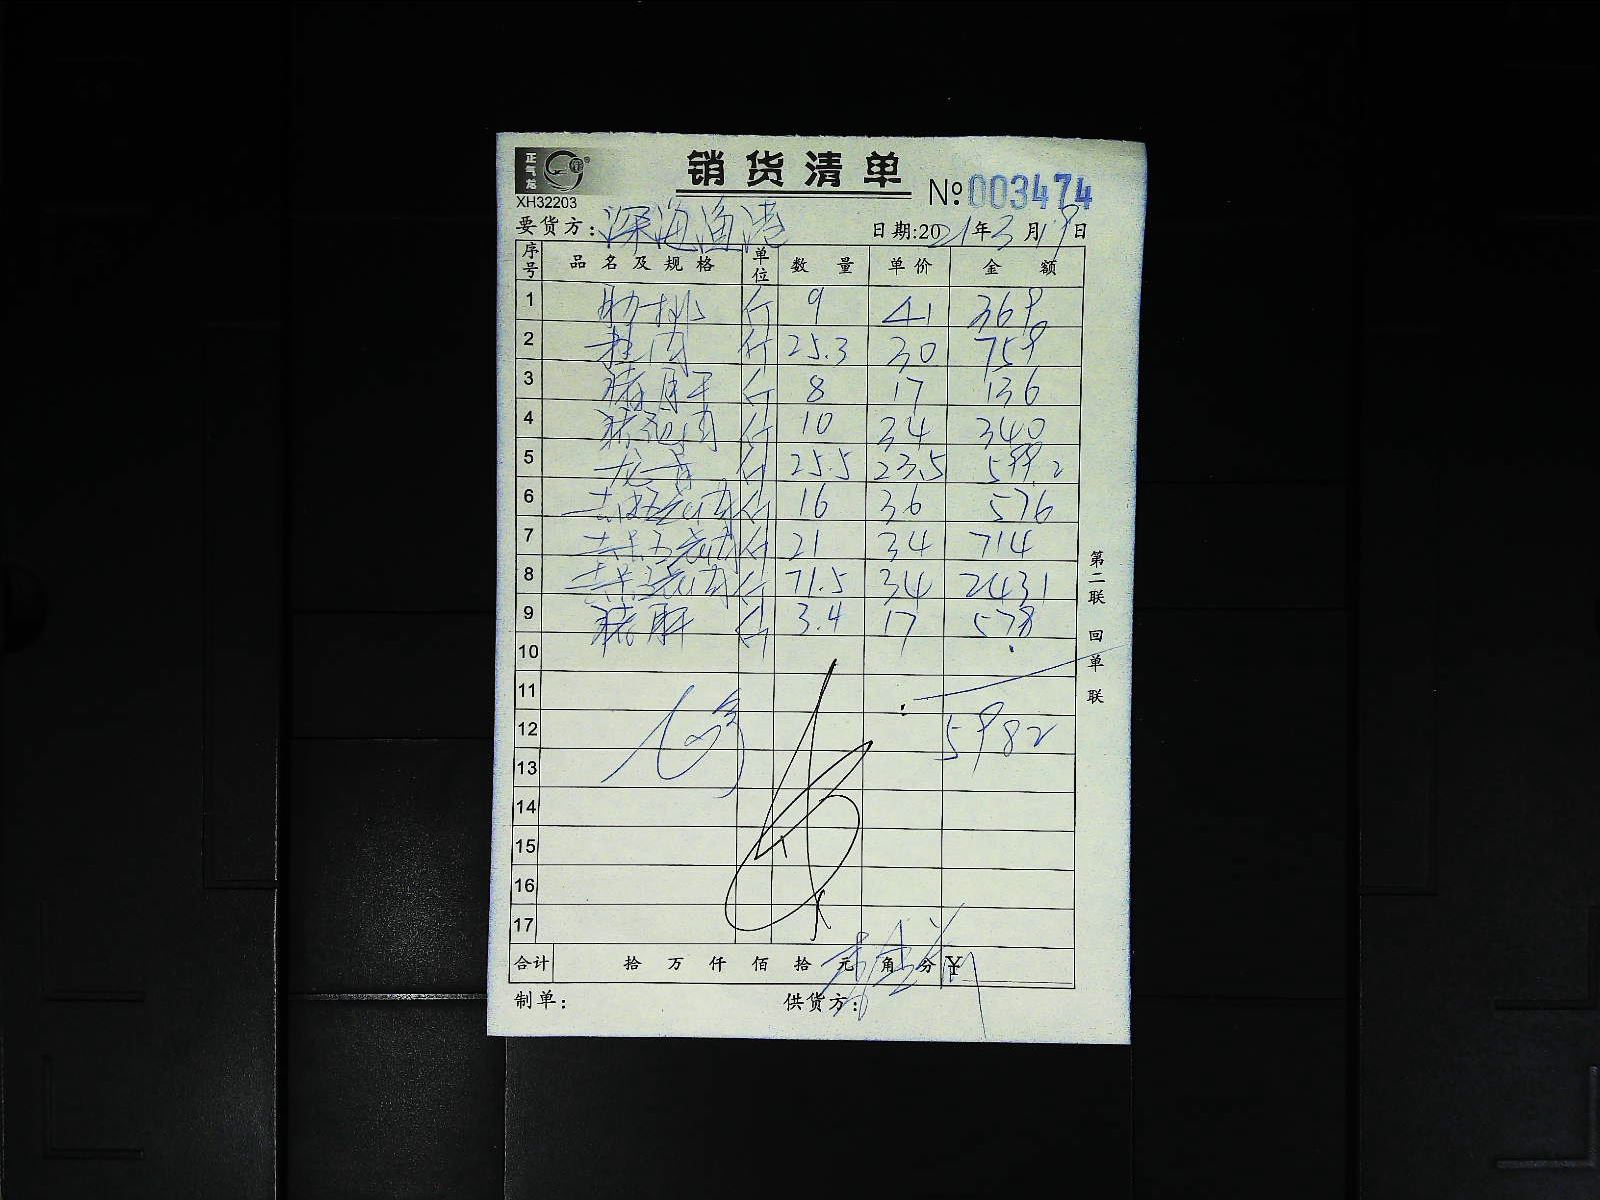 正气龙
销货清单
XH32203
№ 003474
要货方: 深海渔港 日期:2021年3月19日
序号 品名及规格 单位 数量 单价 金额
1 肋排 斤 9 41 369
2 斤 25.3 30 759
3 猪肝 斤 8 17 136
4 斤 10 34 340
5 龙骨 斤 25.5 23.5 599.2
6 斤 16 36 576
7 斤 21 34 714
8 斤 71.5 34 2431
9 猪肝 斤 3.4 17 578
10
11
12 5982
13
14
15
16
17
合计 拾万仟佰拾元角分 ¥
制单: 供货方:
第二联 回单联